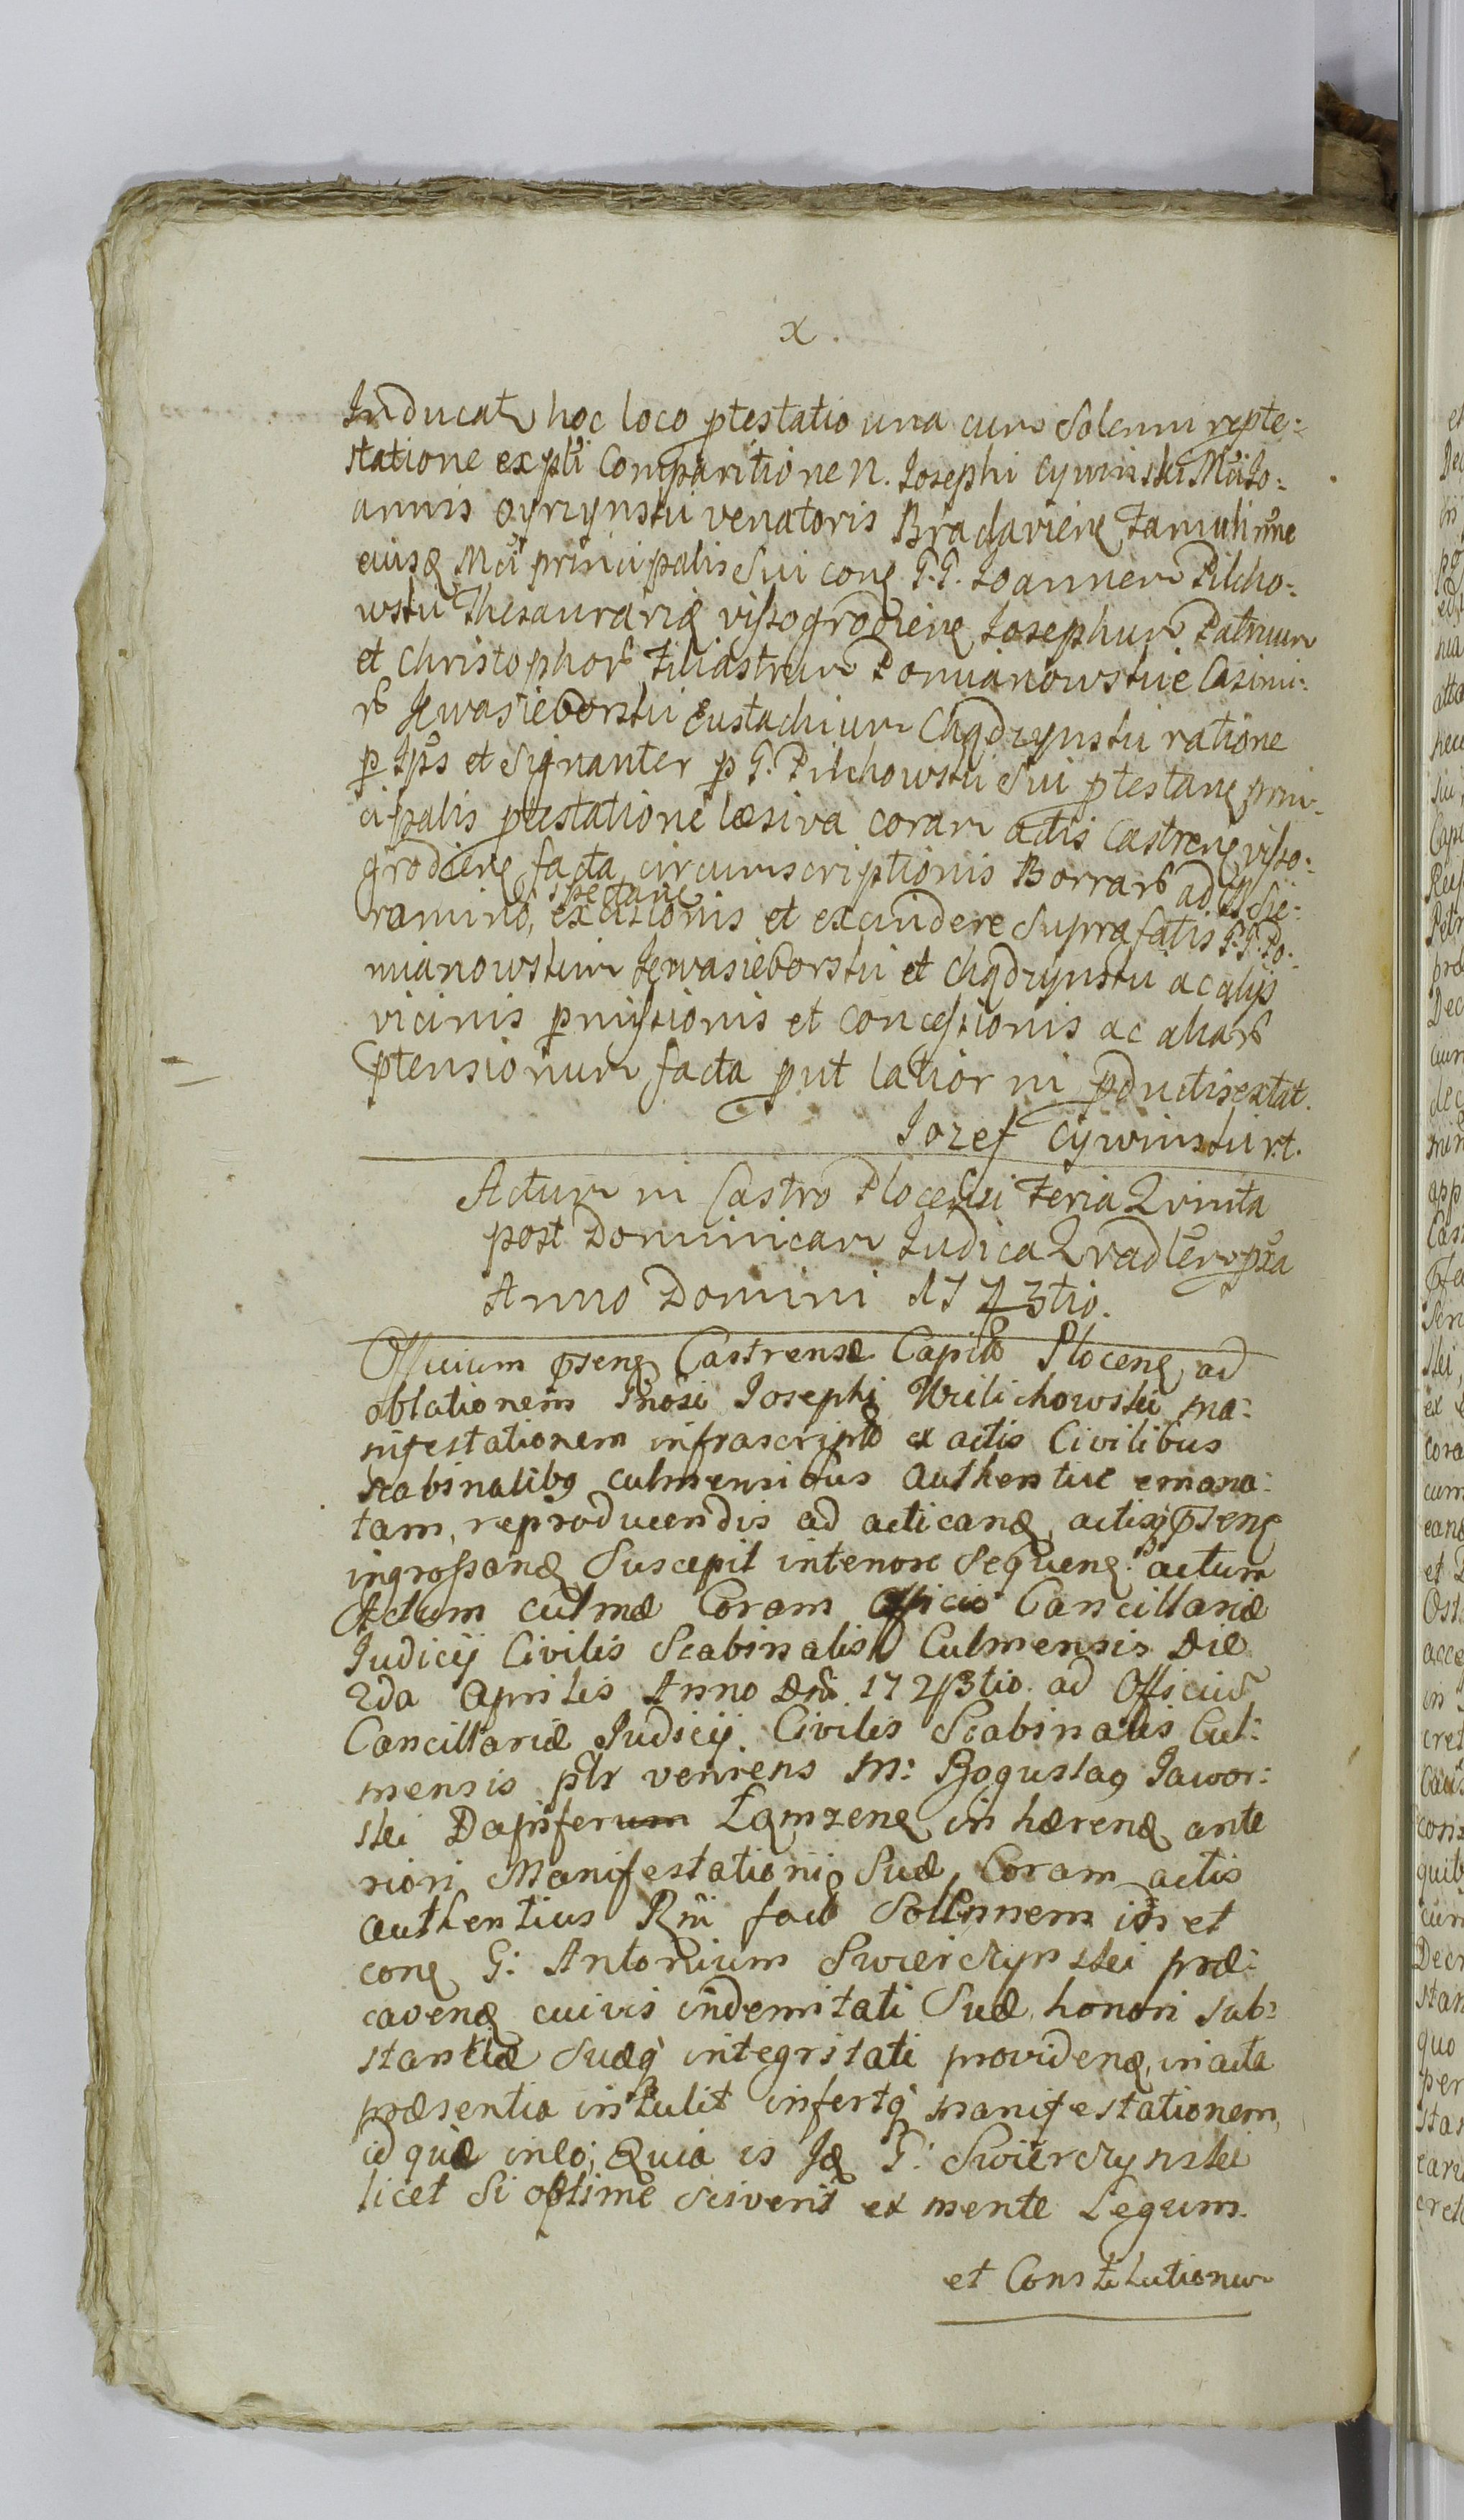 x.
Inducat hoc loco ptestatio una cum Solenni repte:
statione ex pti Comparitione N. Josephi Cywinski Mci Jo:
annis Oyrzynski venatoris Braclaviens Famuli nne
eiusq Mci principalis Sui cong G.G. Joannem Pilcho:
wski Thesaurariu vissogrodiens Josephum Patruum
et Christophor Filiastrum Pomianowskie Casimi:
r Jewasieborski Eustachium Chądzynski ratione
p Ips et Signanter p G. Pilchowski Sui ptestang prin:
cipalis ptestatione læsiva coram actis Castreng visso:
grodiens facta, circumscriptionis Borrar ad Sie:
spectan
ramino, excisionis et excindere Suprafatis G.G. Po:
mianowskim Jewasieborski et Chądzynski ac alijs
vicinis pmissionis et concessionis ac aliar
ptensionum facta put latior in pductis extat.
Jozef Cywinski rt.
Actum in Castro Plocensi Feria Qvinta
post Dominicam Judica Qvadlem pxa
Anno Domini 1743tio.
Officium psens Castrense Capit Plocens ad
oblationem Gnosi Josephi Wilichowski ma:
nifestationem infrascript ex actis Civilibus
Scabinalibq Culmensibus Authentice emana:
tam, reproducendis ad acticand, actisq psens
ingrossand Suscepit in tenore Sequens: actum
Actum Culmæ Coram Officio Cancillariæ
Judicij Civilis Scabinalis Culmensis Die
2da Aprilis Anno Dni 1743tio. ad Officiu
Cancillariæ Judicij Civilis Scabinalis Cul:
mensis plr veniens M: Boguslaq Jawor:
ski Dapiferum Łąmzens in hærend ante
riori Manifestationi Suæ, Coram actis
authentius Rni fact Sollennem in et
cong G: Antonium Swierczynski præ:
cavend cuivis indemnitati Suæ, honori sub:
stantiæ Suæq integritati providend, in acta
præsentia intulit infertq manifestationem,
id quæ in eo; Quia is Id G: Swierczynski
licet Si optime Sciverit ex mente Legum
et Constitutionum